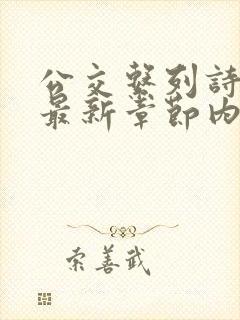 公交系列詩
最新章節內
索善武